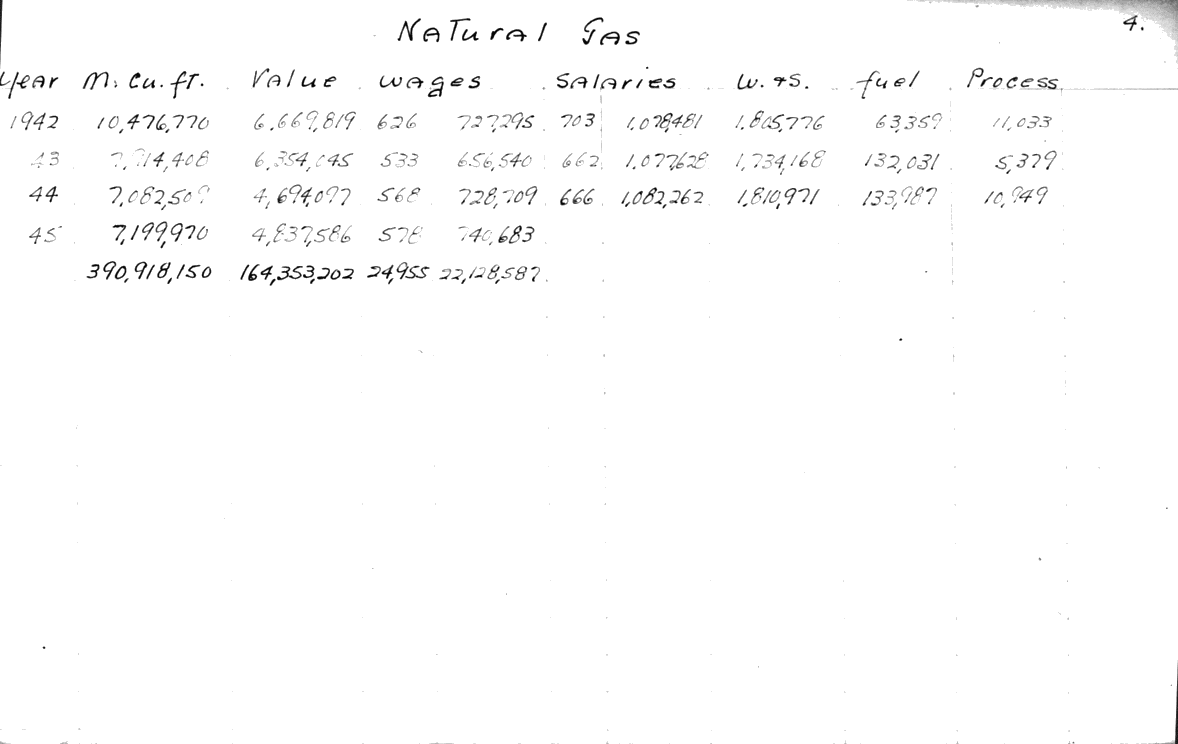 4.
Natural Gas
Year M. Cu. ft. Value Wages Salaries W. & S. fuel Process
1942 10,476,770 6,669,819 626 727,295 703 1,078,481 1,805,776 63,359 11,033
43 6,354,045 533 656,540 662 1,077,628 1,734,168 132,031 5,379
44 4,694,097 568 728,709 666 1,082,262 1,810,971 133,987 10,949
45 7,199,970 4,837,586 578 740,683
390,918,150 164,353,202 24,955 22,128,587.